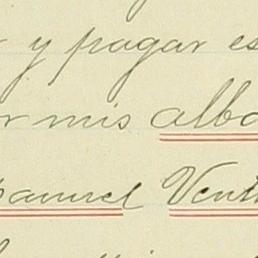 y pagar es
r mis alba
amuel Vent